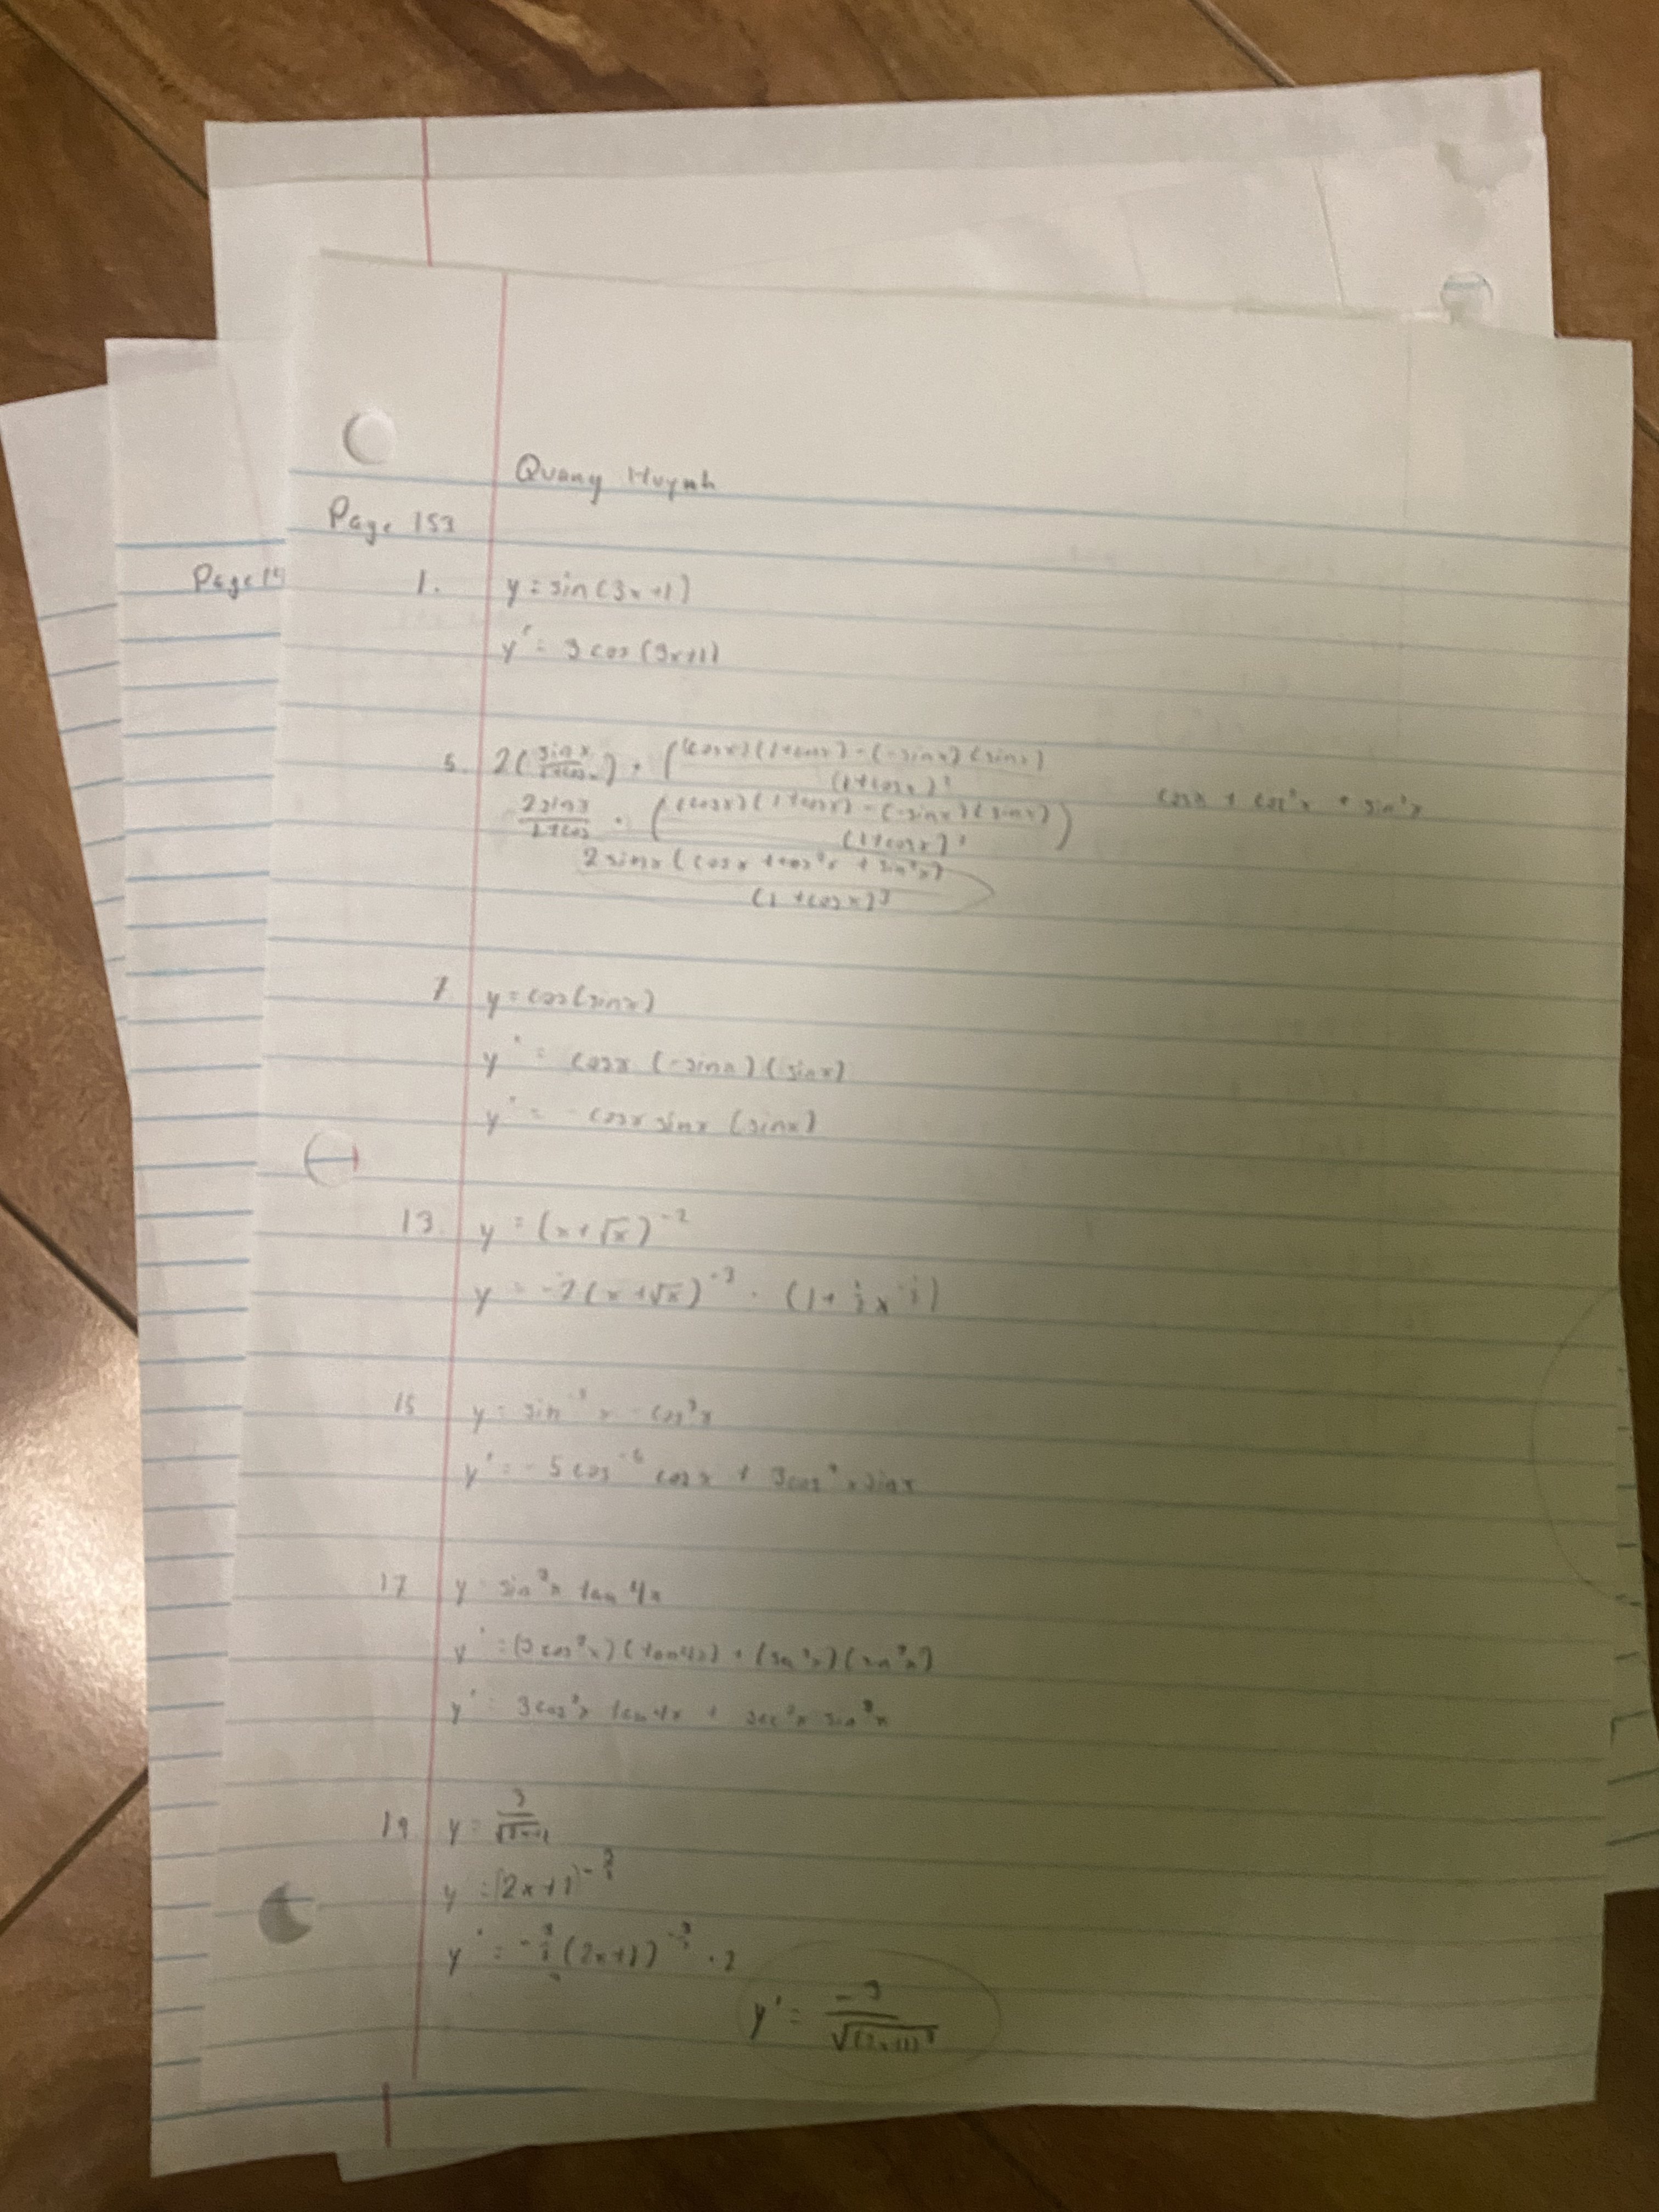 Quang Huynh
Page 153
Page 14
1. y = sin(3x+1)
y' = 3 cos(3x+1)
5. 2(sinx/1+cosx) · ((cosx)(1+cosx) - (-sinx)(sinx)/(1+cosx)²
2sinx/1+cos · ((cosx)(1+cosx) - (-sinx)(sinx)/(1+cosx)²)
cosx + cos²x + sin²x
2sinx(cosx + cos²x + sin²x)/(1+cosx)³
7 y = cos(sinx)
y' = cosx (-sinx)(sinx)
y' = -cosx sinx (sinx)
13. y = (x+√x)⁻²
y = -2(x+√x)⁻³ · (1+ ½x
15 y = sin⁻⁵x - cos³x
y' = -5 cos⁻⁶ cosx + 3cos²x sinx
17 y = sin³x tan 4x
y' = (3cos²x)(tan4x) + (sin³x)
y' = 3cos²x tan4x + sec²x sin³x
19 y = 3/√2x+1
y = (2x+1)
y' = (2x+1) · 2
y' = -3/√(2x+1)³